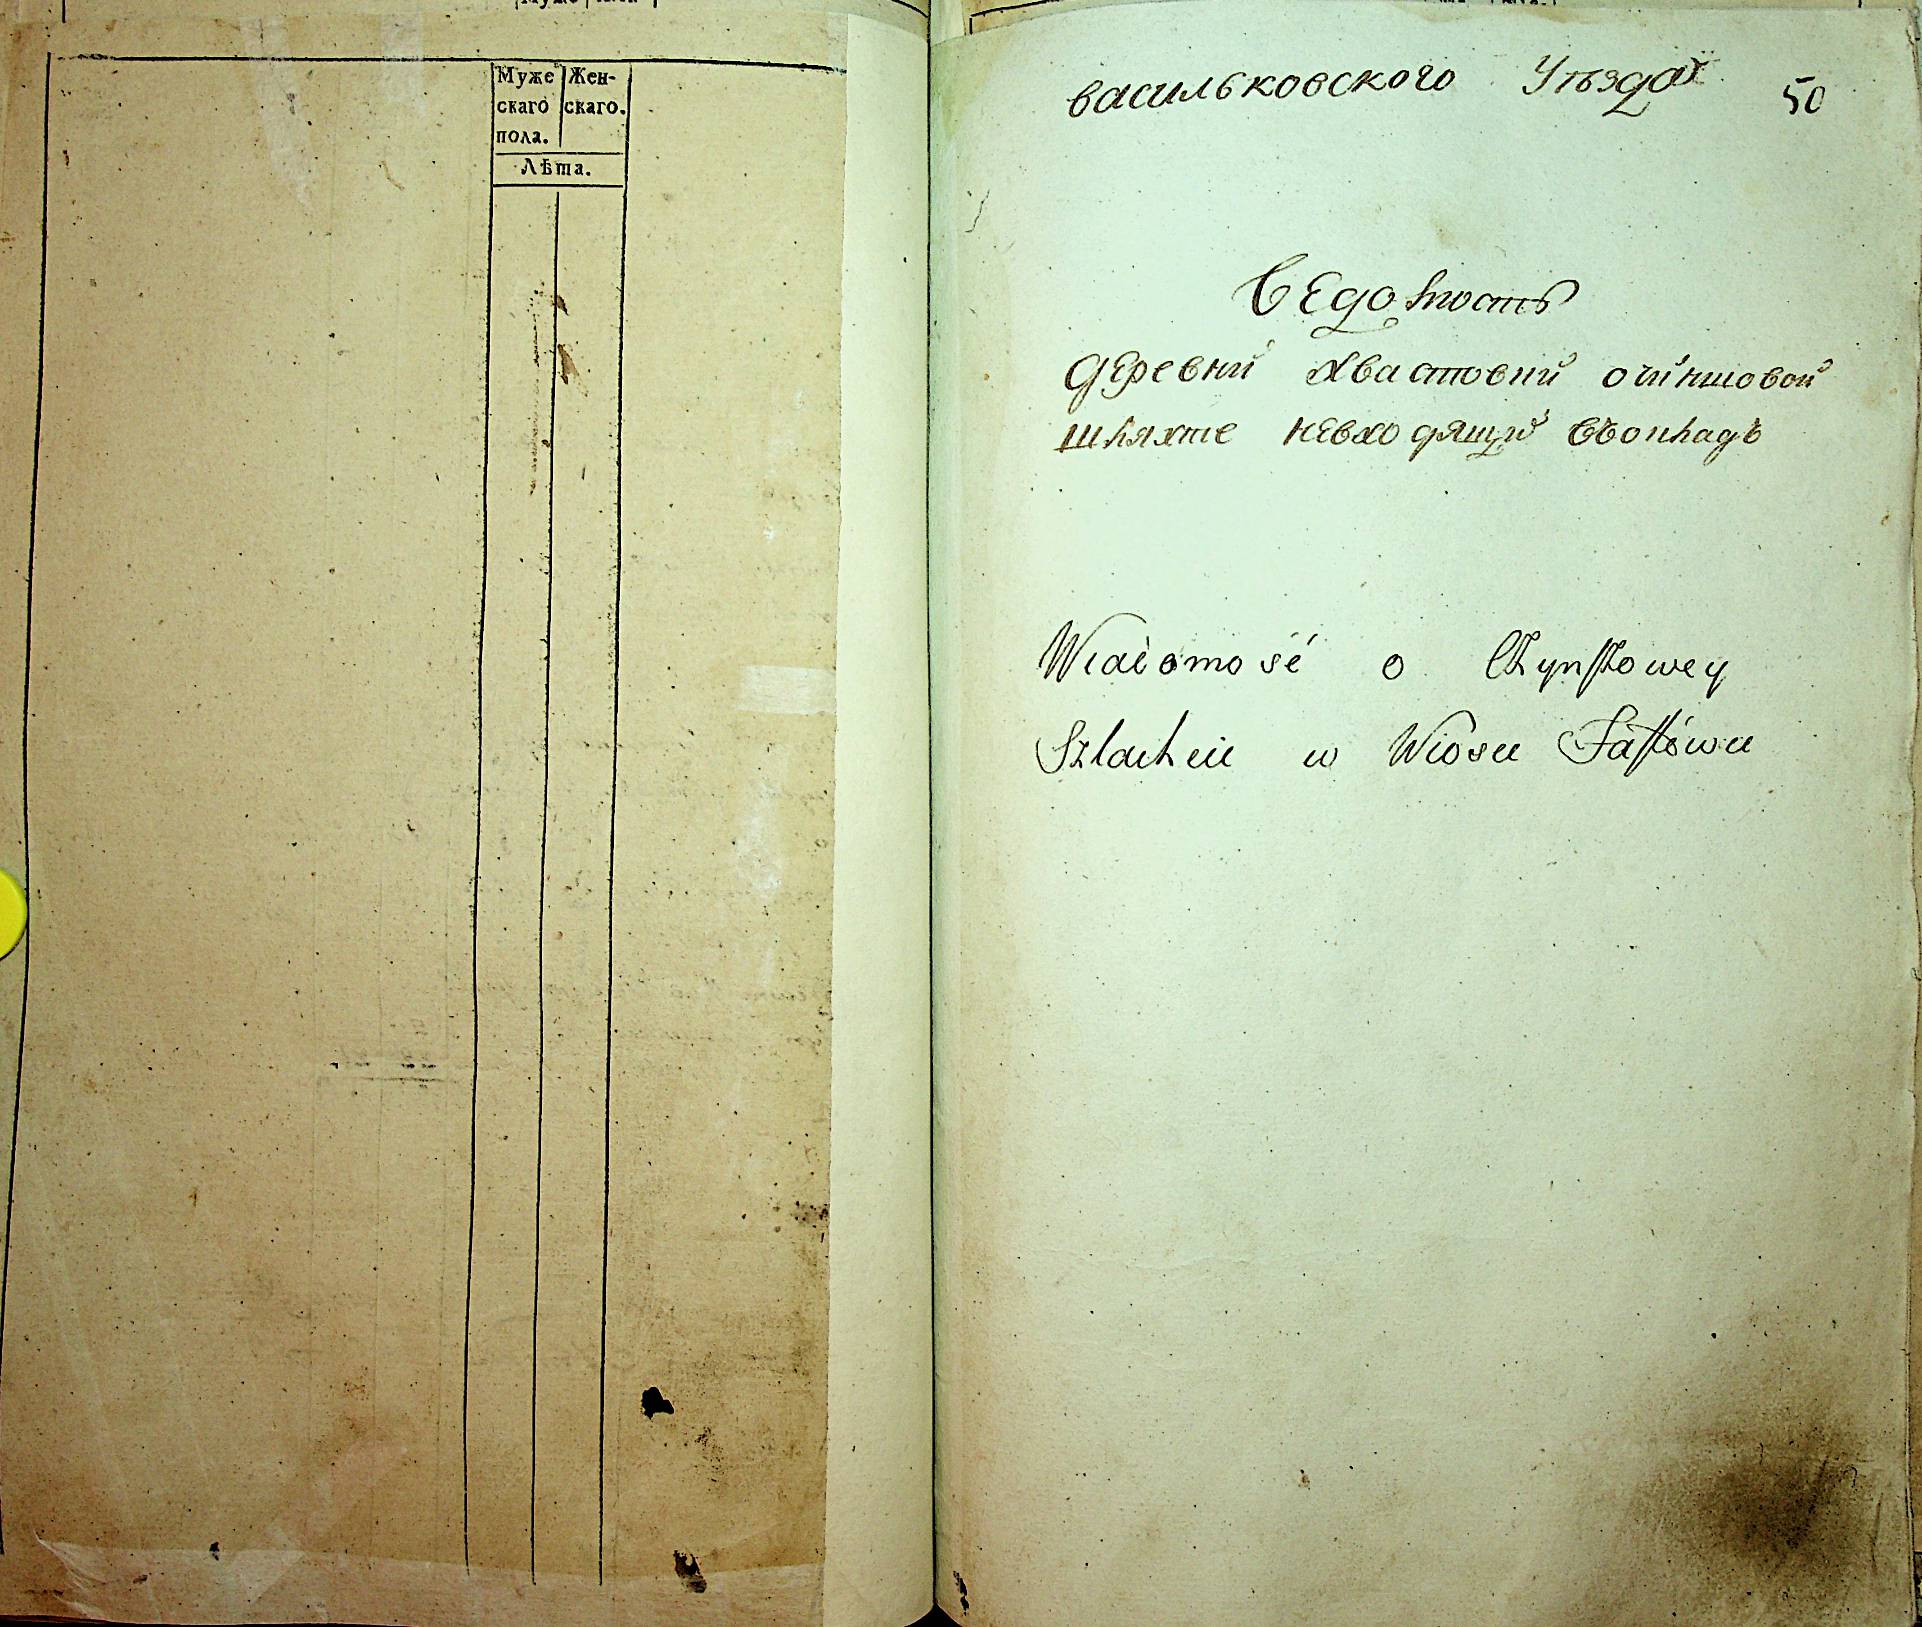 Муже Жен-
скаго скаго.
пола.
Лѣта.
васильковского Уѣзда 50
Ведомость
деревни Хвастовки очиншовой
шляхте невходящий въокладъ
Wiadomość o Czynszowey
Szlachcie w Wiosce Fastowce